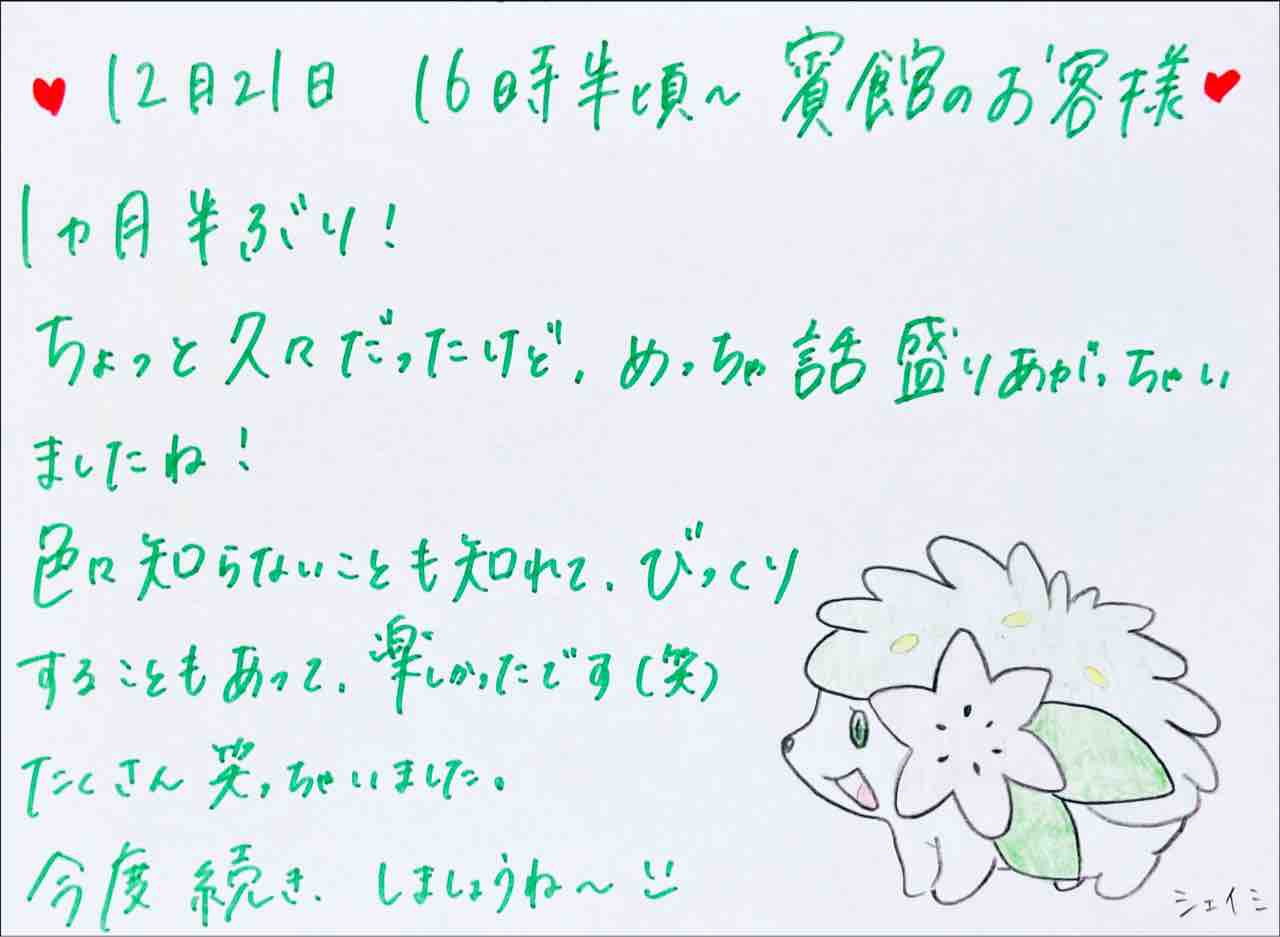 ♥12月21日 16時半頃〜 賓館のお客様♥
1ヵ月半ぶり!
ちょっと久々だったけど、めっちゃ話盛りあがっちゃい
ましたね!
色々知らないことも知れて、びっくり
することもあって、楽しかったです(笑)
たくさん笑っちゃいました。
今度続き、しましょうね〜
シェイミ